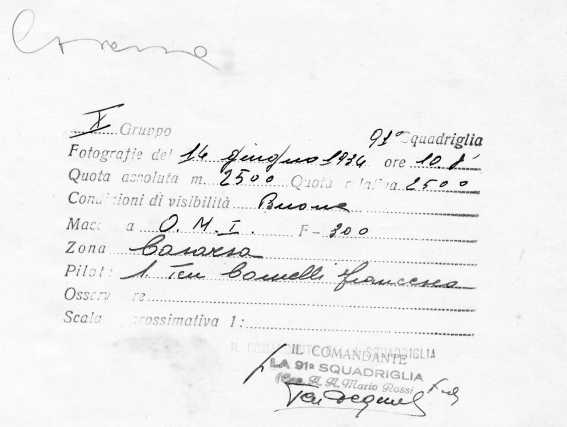 Casarsa
X Gruppo 91ª Squadriglia
Fotografie del 14 giugno 1934 ore 10
Quota assoluta m. 2500 Quota relativa 2500
Condizioni di visibilità Buone
Macc a O. M. I. F- 300
Zona Casarsa
Pilota 1. Ten
Osservatore
Scala approssimativa 1:
IL COMANDANTE
LA 91ª SQUADRIGLIA
Mario Rossi